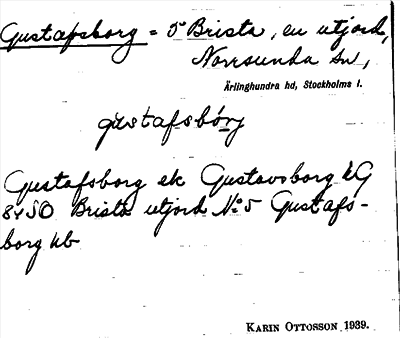 Gustafsborg = 5 Brista, en utjord,
Norrsunda sn,
Ärlinghundra hd, Stockholms l.
gustafsbórj
Gustafsborg ek Gustavsborg kG
8450 Brista utjord No 5 Gustafs-
borg kb
KARIN OTTOSSON 1939.